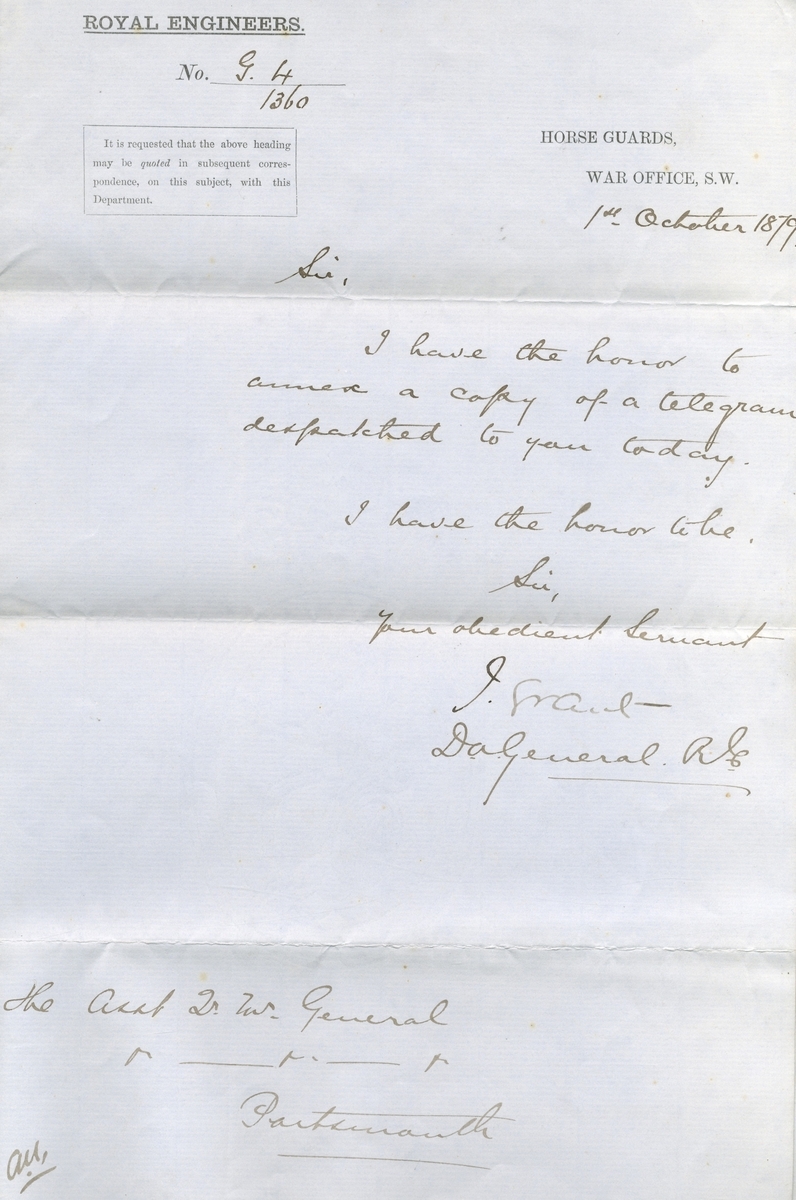 ROYAL ENGINEERS.
No. G. 4
1360
It is requested that the above heading
may be quoted in subsequent corres-
pondence, on this subject, with this
Department.
HORSE GUARDS,
WAR OFFICE, S.W.
1st October 1879.
Sir,
I have the honor to
annex a copy of a telegram
despatched to you today.
I have the honor to be,
Sir,
Your obedient Servant
J. Grant
D.A. General. R.E.
The Asst Qr. Mr. General
Portsmouth